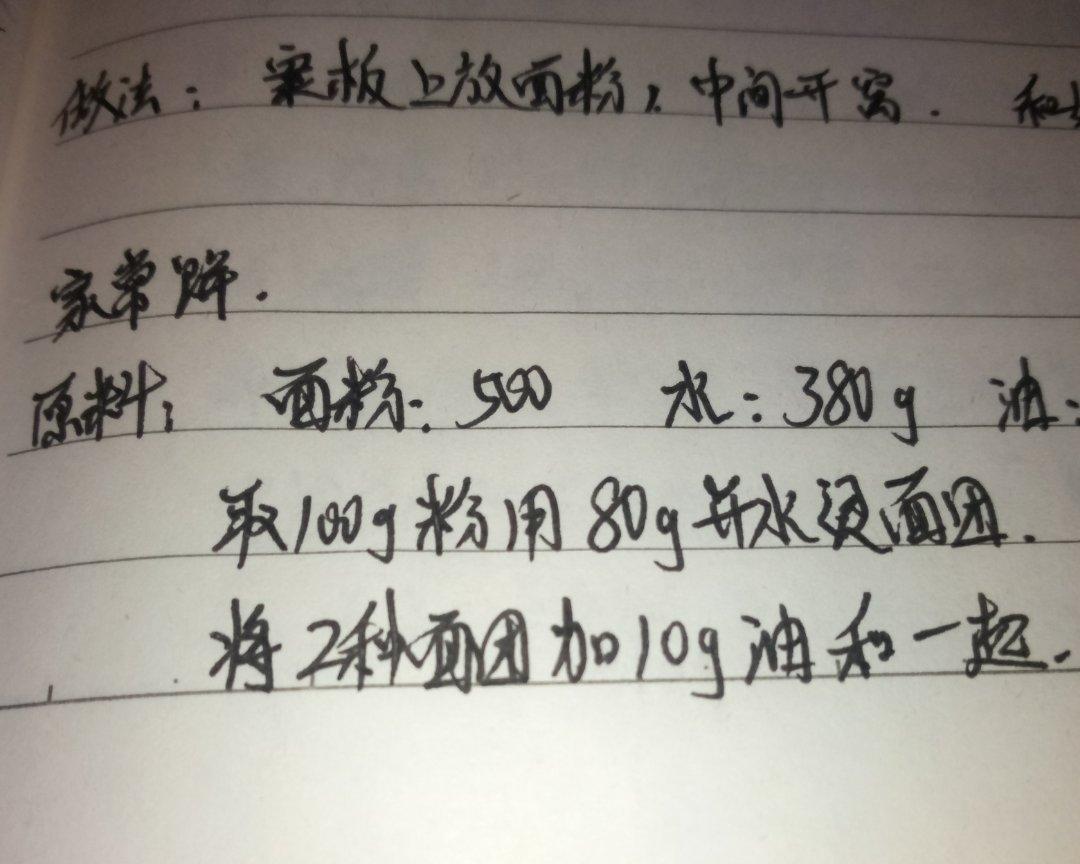 做法：案板上放面粉，中间开窝. 和
家常饼.
原料： 面粉：500 水：380g 油：
取100g粉用80g开水烫面团.
将2种面团加10g油和一起.